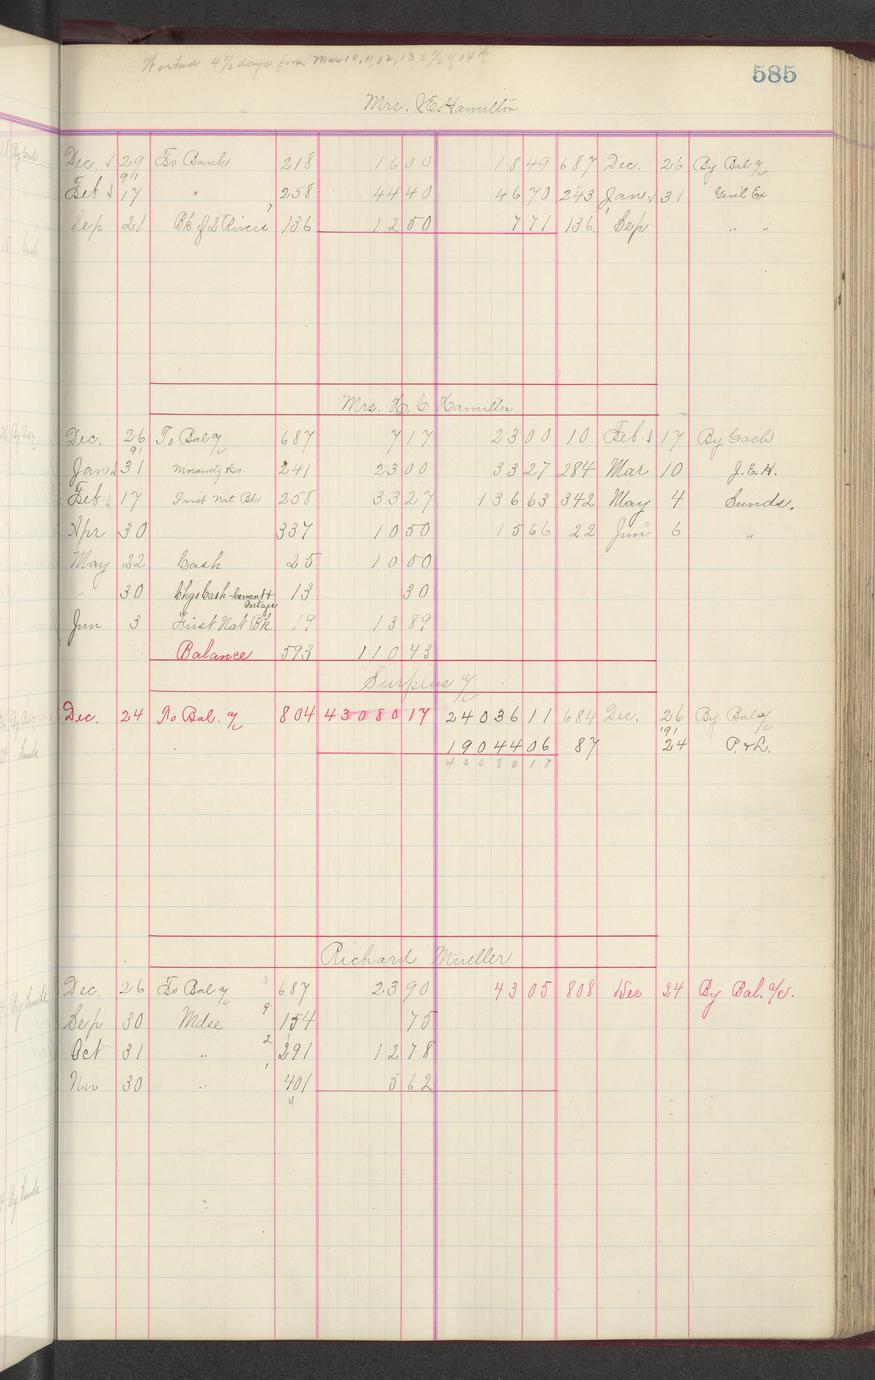 Worked 4 1/2 days from Mar 10, 11, 12, 13 & 1/2 of 14th
585
Mrs. J E Hamilton
Dec. 29 To Bank 218 16 00 18 49 687 Dec. 26 By Bal a/c
91
Feb 17 " 258 44 40 46 70 243 Jan 31 Genl Ex
Sep 21 Bk of 2 Rivers 136 12 50 7 71 136 Sep " "
Mrs. H. C Hamilton
Dec. 26 To Bal a/c 687 7 17 23 00 10 Feb 17 By Cash
91
Jan 31 241 23 00 33 27 284 Mar 10 J.E.H.
Feb 17 First Nat Bk 258 33 27 136 63 342 May 4 Sunds.
Apr 30 337 10 50 15 66 22 Jun 6 "
May 22 Cash 25 10 00
30 Chgs Cash - Cement & Postage 13 30
Jun 3 First Nat Bk 19 13 89
Balance 593 110 43
Surplus a/c
Dec. 24 To Bal. a/c 804 43080 17 24036 11 684 Dec. 26 By Bal a/c
'91
19044 06 87 24 P. & L.
43080 17
Richard Mueller
Dec. 26 To Bal a/c 687 23 90 43 05 808 Dec 24 By Bal. a/c.
Sep 30 Mdse 154 75
Oct 31 " 291 12 78
Nov 30 " 401 5 62